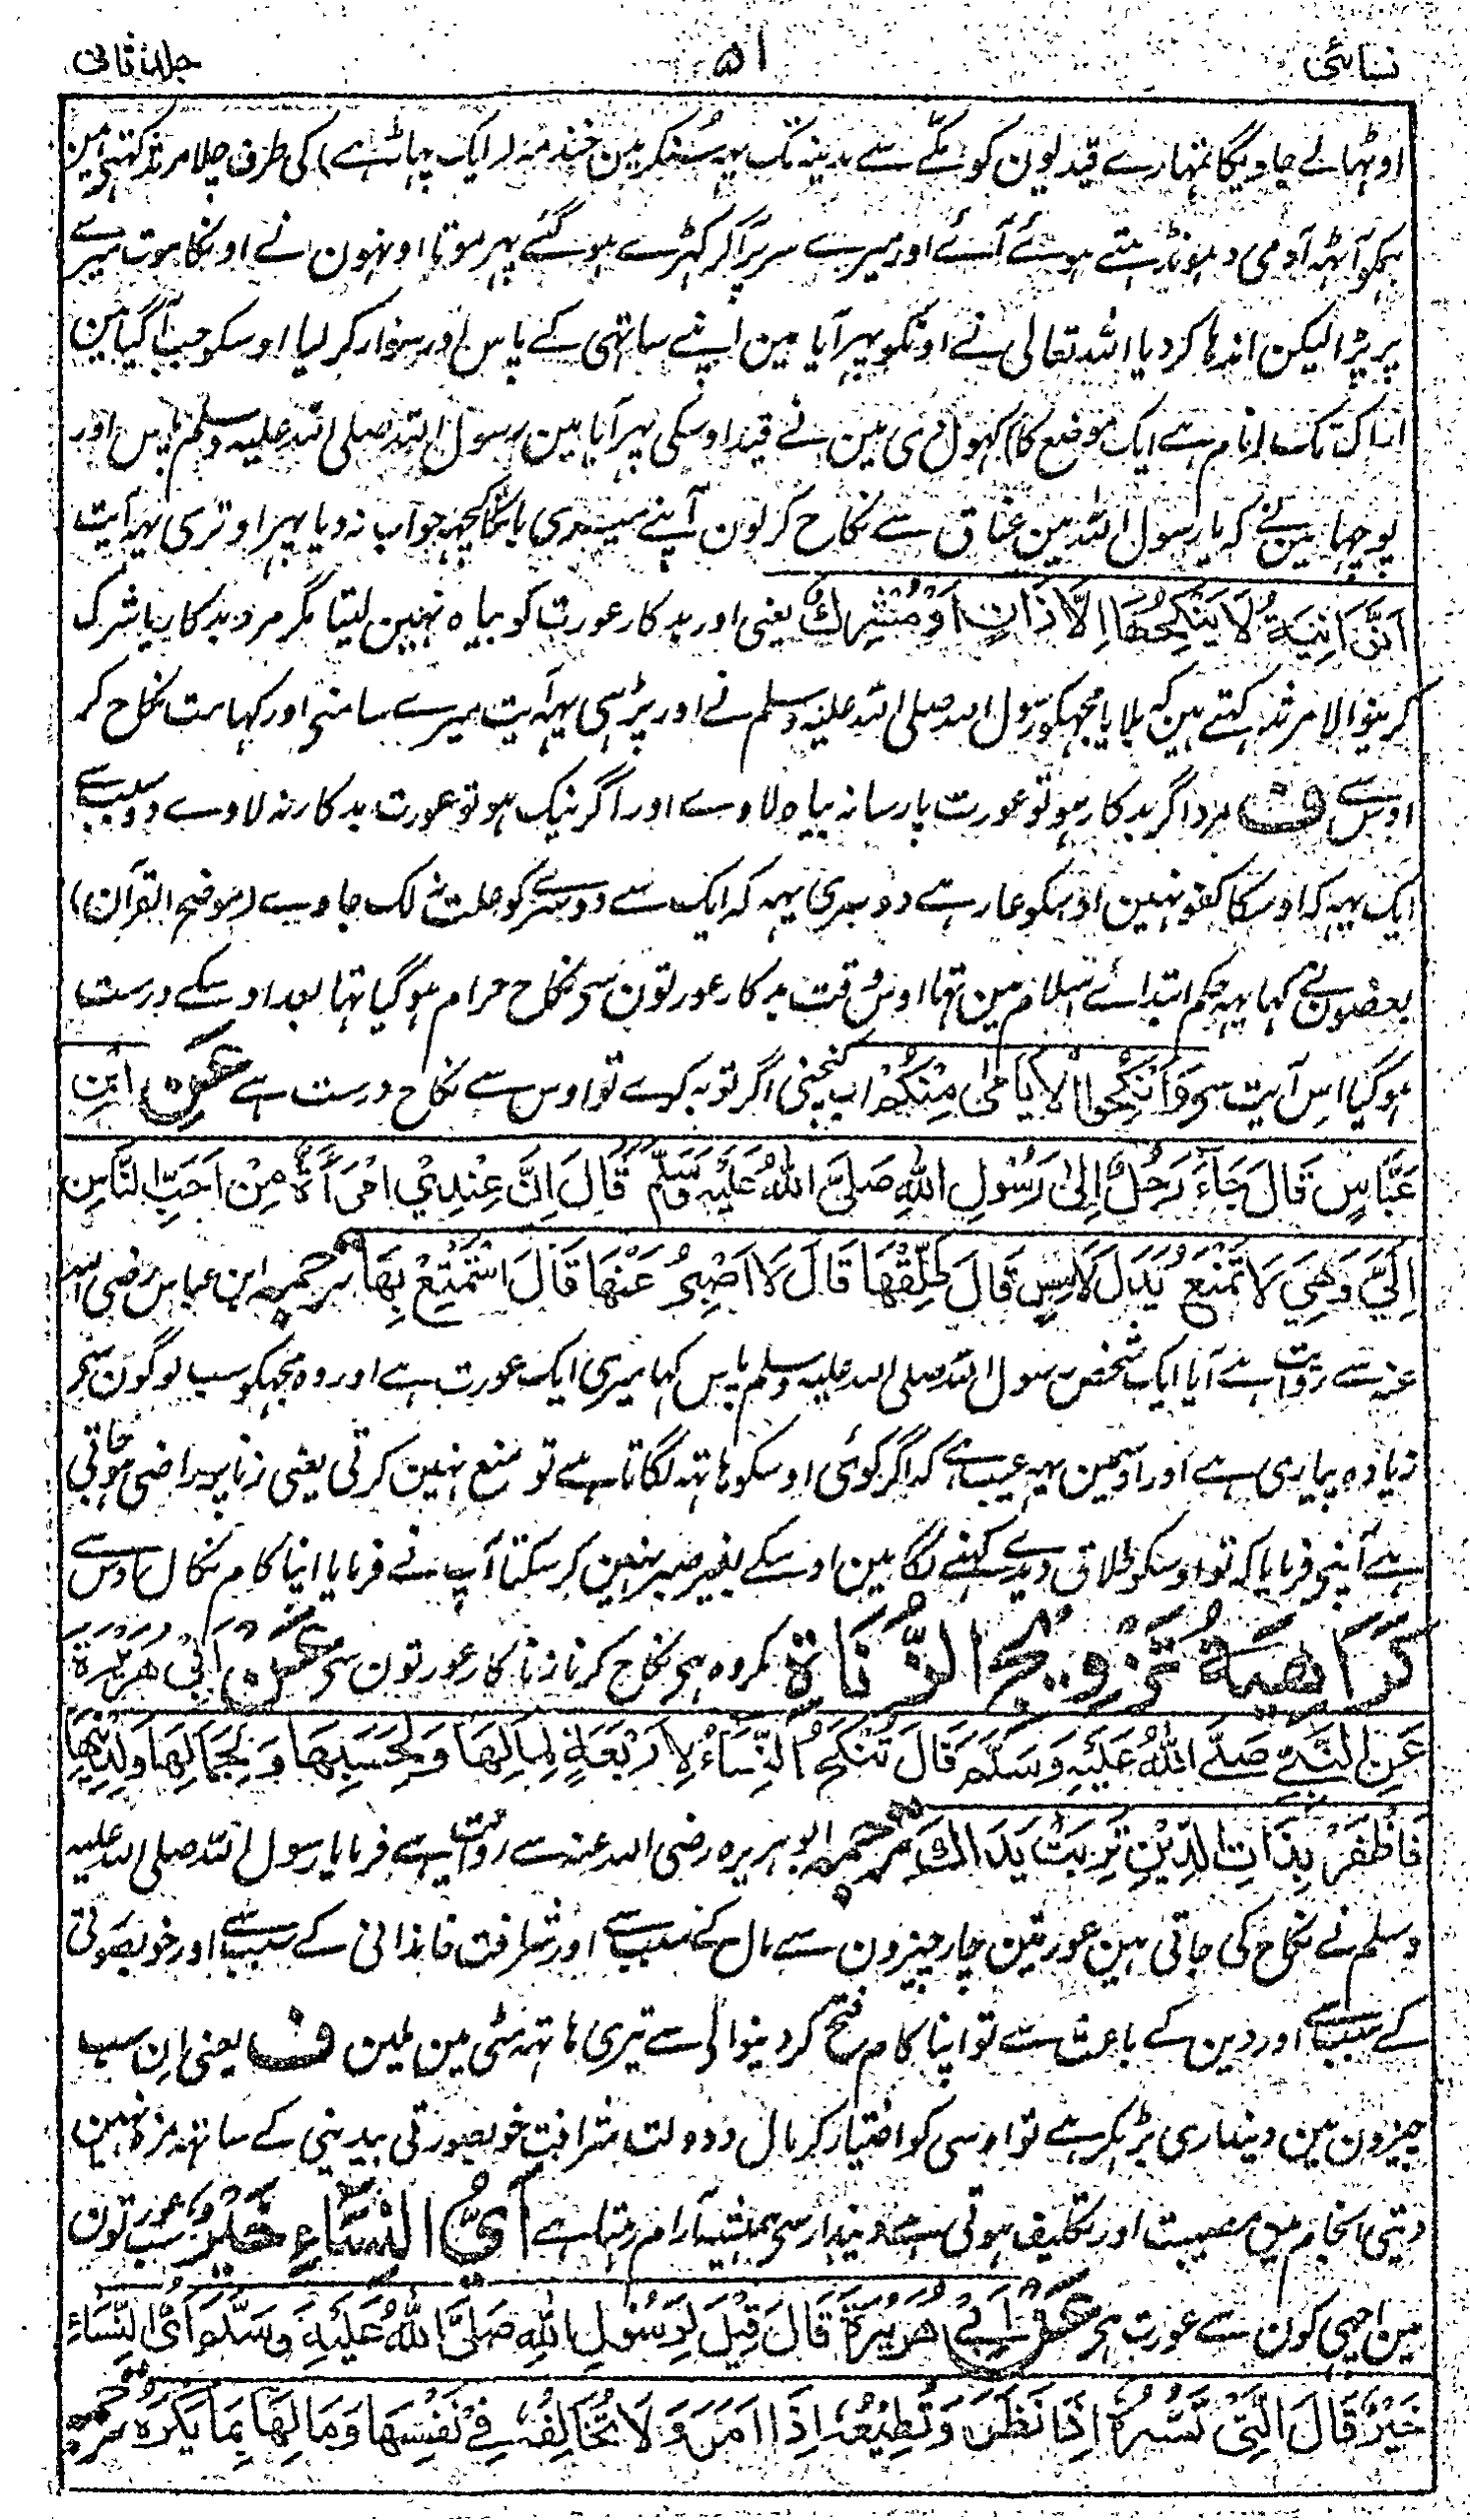 نسائی ۵۱ جلد ثانی
اوٹھالے جاویگا تمہارے قیدیون کو مکّے سے مدینہ تک یہہ سُنکر مین خندمہ (ایک پہاڑ ہے) کی طرف چلا مرثد کہتے ہین
ہمکو آٹھہ آدمی ڈہونڈہتے ہوئے آئے اور میرے سر پر آکر کہڑے ہوگئے پہر موتا اونہون نے اونکا موت میرے
پر پڑا لیکن اندہا کردیا اللہ تعالی نے اونکو پہر آیا مین اپنے ساتہی کے پاس اور سوار کرلیا اوسکو جب آگیا مین
اراک تک (نام ہے ایک موضع کا) کہول دی مین نے قید اوسکی پہر آیا مین رسول اللہ صلی اللہ علیہ وسلم پاس اور
پوچہا مین نے کہ یا رسول اللہ مین عناق سے نکاح کرلون آپنے میری بات کا کچہہ جواب نہ دیا پہر اوتری یہہ آیت
اَلزَّانِيَةُ لَا يَنْكِحُهَا اِلَّا زَانٍ اَوْ مُشْرِكٌ یعنی اور بدکار عورت کو بیاہ نہین لیتا مگر مرد بدکار یا شرک
کرنیوالا مرثد کہتے ہین کہ بلایا مجہکو رسول اللہ صلی اللہ علیہ وسلم نے اور پڑہی یہہ آیت میرے سامنی اور کہا مت نکاح کر
اوس سے ف مرد اگر بدکار ہو تو عورت پارسا نہ بیاہ لاوے اور اگر نیک ہو تو عورت بدکار نہ لاوے دو سبب سے
ایک یہہ کہ اوسکا کفو نہین اوسکو عار ہے دوسری یہہ کہ ایک سے دوسرے کو علت نہ لگ جاوے (موضح القرآن)
بعضون نے کہا یہہ حکم ابتدائے اسلام مین تہا اوس وقت بدکار عورتون سی نکاح حرام ہوگیا تہا بعد اوسکے درست
ہوگیا اس آیت سی وَاَنْكِحُوا الْاَيَامٰى مِنْكُمْ اب کنچنی اگر توبہ کرے تو اوس سے نکاح درست ہے عَنِ ابْنِ
عَبَّاسٍ قَالَ جَاءَ رَجُلٌ اِلٰى رَسُوْلِ اللهِ صَلَّى اللهُ عَلَيْهِ وَسَلَّمَ قَالَ اِنَّ عِنْدِيْ امْرَأَةً مِنْ اَحَبِّ النَّاسِ
اِلَيَّ وَهِيَ لَا تَمْنَعُ يَدَ لَامِسٍ قَالَ طَلِّقْهَا قَالَ لَا اَصْبِرُ عَنْهَا قَالَ اسْتَمْتِعْ بِهَا ترجمہ ابن عباس رضی اللہ
عنہ سے روایت ہے آیا ایک شخص رسول اللہ صلی اللہ علیہ وسلم پاس کہا میری ایک عورت ہے اور وہ مجہکو سب لوگون سی
زیادہ پیاری ہے اور اوسمین یہہ عیب ہے کہ اگر کوئی اوسکو ہاتہہ لگاتا ہے تو منع نہین کرتی یعنی زنا پر راضی ہوجاتی
ہے آپنی فرمایا کہ تو اوسکو طلاق دیدے کہنے لگا مین اوسکے بغیر صبر نہین کرسکتا آپ نے فرمایا اپنا کام نکال اوس سے
كَرَاهِيَةُ تَزْوِيْجِ الزُّنَاةِ مکروہ ہی نکاح کرنا زناکار عورتون سی عَنْ اَبِيْ هُرَيْرَةَ
عَنِ النَّبِيِّ صَلَّى اللهُ عَلَيْهِ وَسَلَّمَ قَالَ تُنْكَحُ النِّسَاءُ لِاَرْبَعَةٍ لِمَالِهَا وَلِحَسَبِهَا وَلِجَمَالِهَا وَلِدِيْنِهَا
فَاظْفَرْ بِذَاتِ الدِّيْنِ تَرِبَتْ يَدَاكَ ترجمہ ابو ہریرہ رضی اللہ عنہ سے روایت ہے فرمایا رسول اللہ صلی اللہ علیہ
وسلم نے نکاح کی جاتی ہین عورتین چار چیزون سے مال کے سبب سے اور شرافت خاندانی کے سبب سے اور خوبصورتی
کے سبب سے اور دین کے باعث سے تو اپنا کام فتح کر دینوالی سے تیری ہاتہہ مٹی مین ملین ف یعنی ان سب
چیزون مین دینداری بڑہکر ہے تو اوسی کو اختیار کر مال و دولت شرافت خوبصورتی بیدینی کے ساتہہ مزہ نہین
دیتی انجام مین مصیبت اور تکلیف ہوتی ہے دیندار سی ہمیشہ آرام رہتا ہے اَيُّ النِّسَاءِ خَيْرٌ سب عورتون
مین اچہی کون سے عورت ہی عَنْ اَبِيْ هُرَيْرَةَ قَالَ قِيْلَ لِرَسُوْلِ اللهِ صَلَّى اللهُ عَلَيْهِ وَسَلَّمَ اَيُّ النِّسَاءِ
خَيْرٌ قَالَ الَّتِيْ تَسُرُّهُ اِذَا نَظَرَ وَتُطِيْعُهُ اِذَا اَمَرَ وَلَا تُخَالِفُهُ فِيْ نَفْسِهَا وَمَالِهَا بِمَا يَكْرَهُ ترجمہ